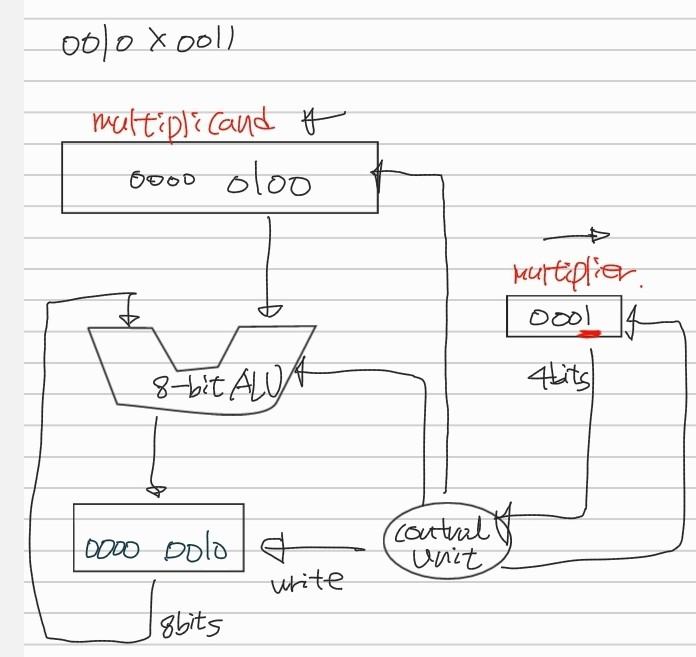 0010 × 0011
multiplicand ←
0000 0100
→
multiplier.
0001
4bits
8-bit ALU
control unit
0000 0010
write
8bits